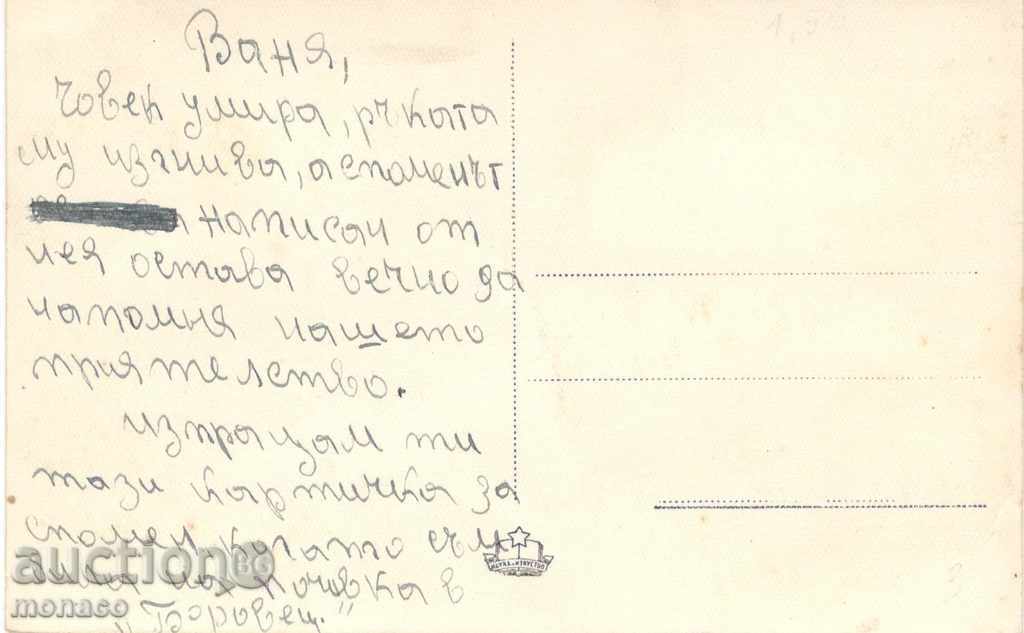 Ваня,
Човек умира, ръката
му изгнива, а споменът
написан от
нея остава вечно да
напомня нашето
приятелство.
Изпращам ти
тази картичка за
спомен когато съм
била на почивка в
"Боровец."
НАУКА И ИЗКУСТВО
auction86
monaco
3